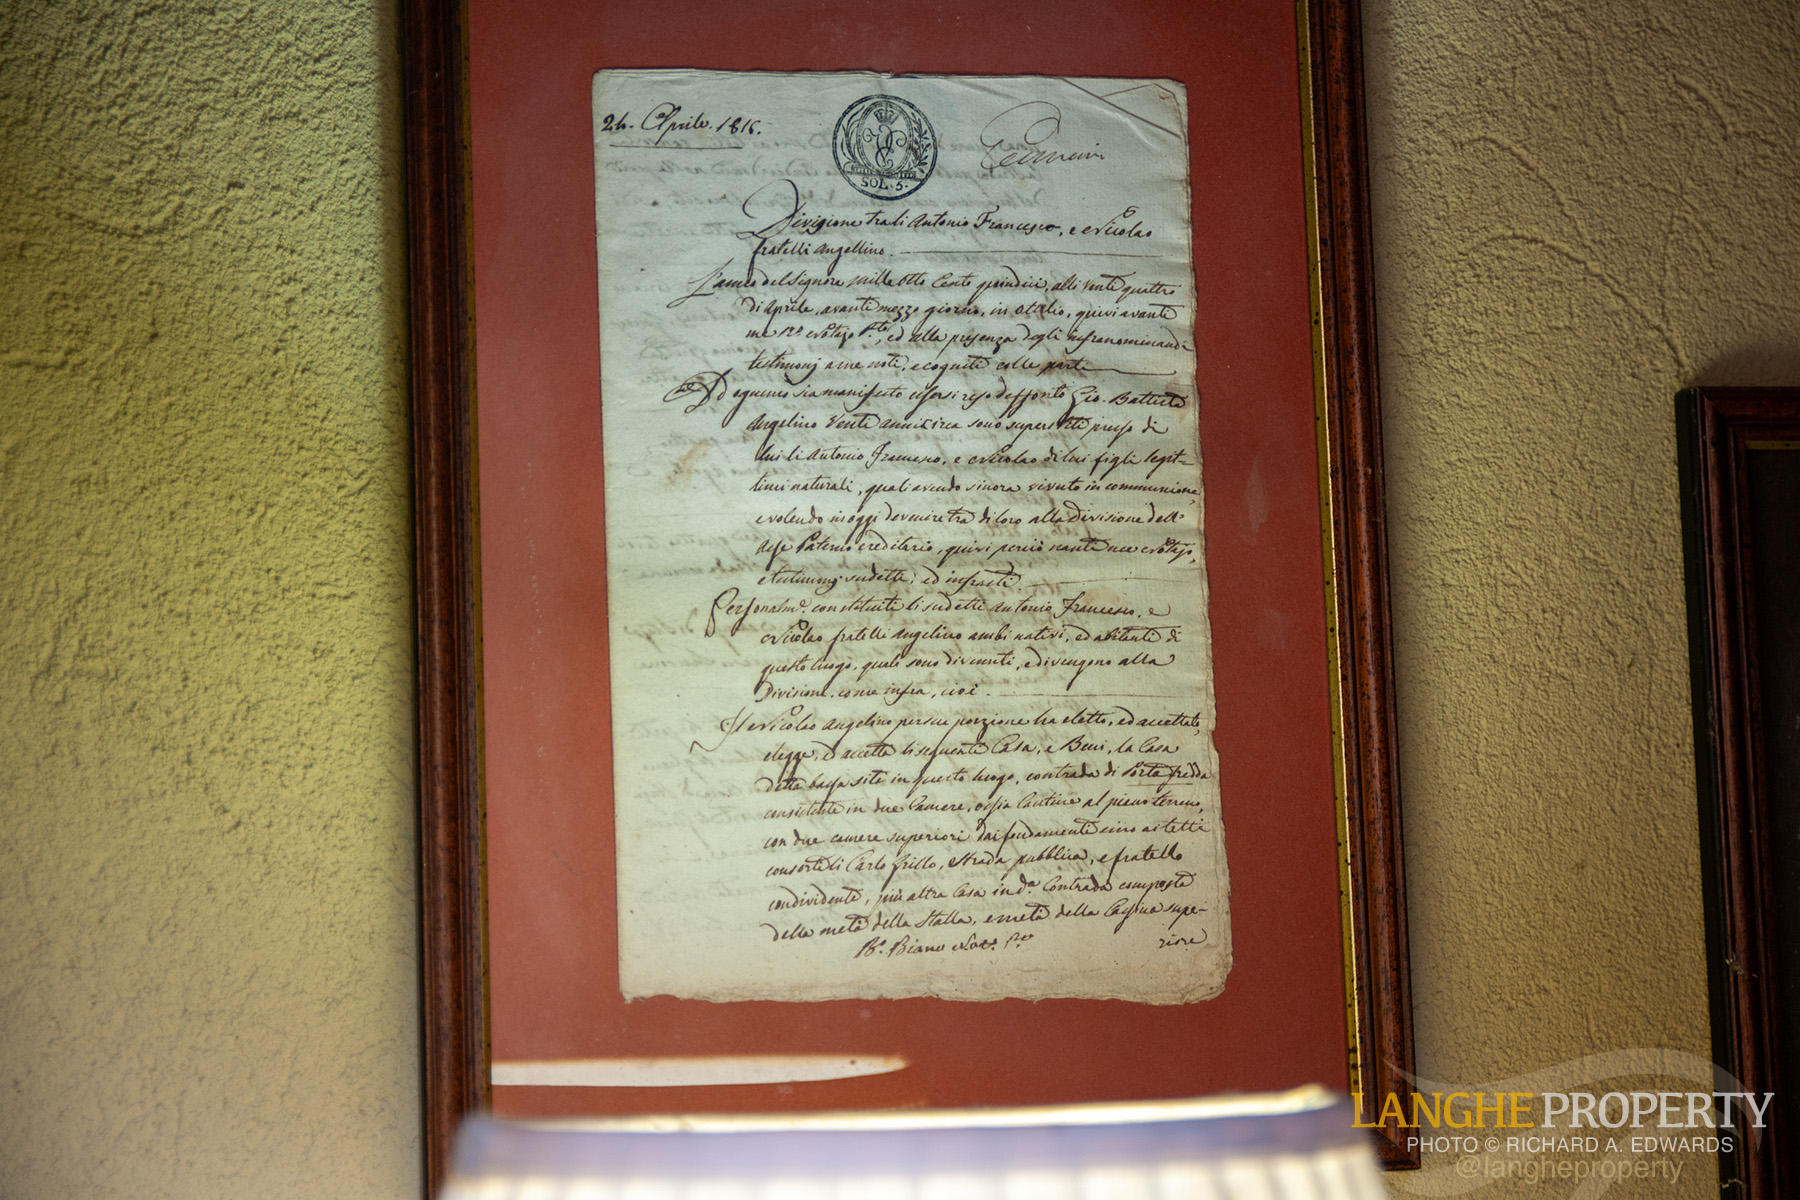 24. Aprile. 1815.
SOL. 5.
Divisione tra li Antonio Francesco, e Nicolao
fratelli Angellino.
L'anno del Signore mille otto Cento quindici, alli venti quattro
di Aprile, avanti mezzo giorno, in quivi avanti
me Notajo ed alla presenza degli infranominandi
testimonj a me noti, e cogniti colle parti
Ad ognuno sia manifesto essersi reso deffonto Gio. Battista
Angelino venti anni circa sono superstiti presso di
lui li Antonio Francesco, e Nicolao di lui figli legit-
timi naturali, quali avendo sinora vivuto in communione,
e volendo in oggi devenire tra di loro alla divisione dell'
asse Paterno ereditario, quivi perciò nanti me Notajo,
e testimonj sudetti, ed infratti
Personalme. constituiti li sudetti Antonio Francesco, e
Nicolao fratelli Angelino ambi nativi, ed abitanti di
questo luogo, quali sono divenuti, e divengono alla
Divisione, come infra, cioè.
Il Nicolao Angelino per sua porzione ha eletto, ed accettato,
elegge, ed accetta li seguenti Casa, e Beni, la Casa
detta bassa siti in questo luogo, contrada di Porta fredda
consistente in due Camere, ossia Cantine al piano terreno,
con due camere superiori dai fondamenti sino ai tetti
consorti li Carlo Grillo, strada pubblica, e fratello
condividente, più altra Casa in da. Contrada composta
della metà della Stalla, e metà della Cassina supe-
Bo. Biano Not.
riore
LANGHE PROPERTY
PHOTO © RICHARD A. EDWARDS
@langheproperty